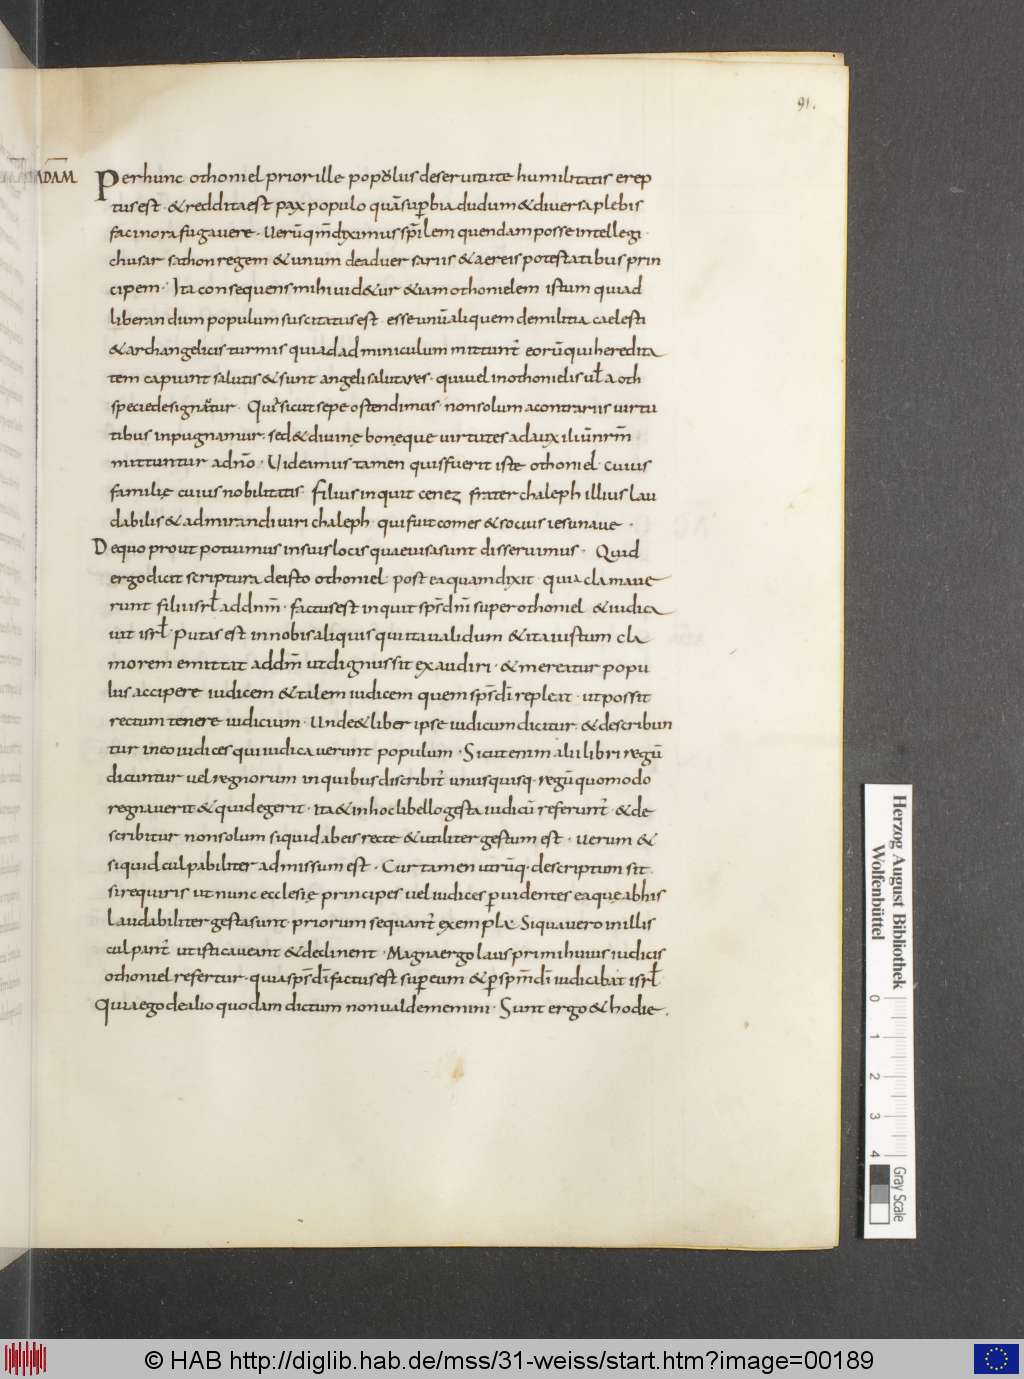 91.
ADAM
Per hunc othoniel prior ille populus de seruitute humilitatis erep
tus est · & reddita est pax populo quā sup̄bia dudum & diuersa plebis
facinora fugauere · Uerū q̄m diximus sp̄ilem quendam posse intellegi ·
chusar sathon regem & unum de aduersariis & aereis potestatibus prin
cipem · Ita consequens mihi uid&ur &iam othonielem istum qui ad
liberandum populum suscitatus est · esse unū aliquem de militia caelesti
& archangelicis turmis qui ad adminiculum mittunt̄ eorū qui heredita
tem capiunt salutis & sunt angeli salutares · qui uel in othonielis ul̄ aoth
specie designatur · Qur̄ sicut sepe ostendimus non solum a contrariis uirtu
tibus inpugnamur · sed & diuinę bonęque uirtutes ad auxiliū nr̄m
mittuntur a dn̄o · Uideamus tamen quis fuerit iste othoniel cuius
familię cuius nobilitatis · filius inquit cenez frater chaleph illius lau
dabilis & admirandi uiri chaleph qui fuit comes & socius iesu naue ·
De quo prout potuimus in suis locis quae uisa sunt disseruimus · Quid
ergo dicit scriptura de isto othoniel postea quam dixit quia clamaue
runt filii isrl̄ ad dnm̄ · factus est inquit sp̄s dn̄i super othoniel & iudica
uit isrl̄ · Putas est in nobis aliquis qui ita ualidum & ita iustum cla
morem emittat ad dm̄ ut dignus sit exaudiri · & mereatur popu
lus accipere iudicem & talem iudicem quem sp̄s dī repleat · ut possit
rectum tenere iudicium · Unde & liber ipse iudicum dicitur & describun
tur in eo iudices qui iudicauerunt populum · Sicut enim alii libri regū
dicuntur uel regnorum in quibus discribit̄ unusquisq· regū quomodo
regnauerit & quid egerit · ita & in hoc libello gesta iudicū referunt̄ · & de
scribitur non solum siquid ab eis recte & utiliter gestum est · uerum &
siquid culpabiliter admissum est · Cur tamen utrūq· descriptum sit
si requiris ut nunc ecclesię principes uel iudices p̱uidentes ea quę ab his
laudabiliter gesta sunt priorum sequant̄ exempla · Siqua uero in illis
culpant̄ ut isti caueant & declinent · Magna ergo laus primi huius iudicis
othoniel refertur · quia sp̄s dī factus est sup̱ eum & p̱ sp̄m dī iudicabat isrl̄
Quia ego de alio quodam dictum non ualde memini · Sunt ergo & hodie .
Herzog August Bibliothek
Wolfenbüttel
0 1 2 3 4
Gray Scale
© HAB http://diglib.hab.de/mss/31-weiss/start.htm?image=00189